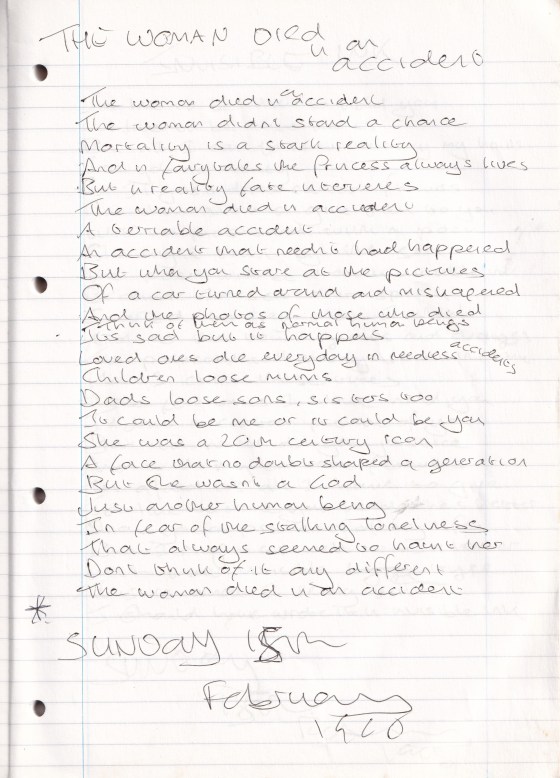 THE WOMAN DIED
in an
accident
The woman died in an accident
The woman didnt stand a chance
Mortality is a stark reality
And in fairytales the Princess always lives
But in reality fate intervenes
The woman died in accident
A terriable accident
An accident that needn't had happened
But when you stare at the pictures
Of a car turned around and mishapened
And the photos of those who died
Think of them as normal human beings
Its sad but it happens
Loved ones die everyday in needless accidents
Children loose mums
Dads loose sons, sisters too
It could be me or it could be you
She was a 20th century icon
A face that no doubt shaped a generation
But she wasn't a God
Just another human being
In fear of the stalking loneliness
That always seemed to haunt her
Dont think of it any different
The woman died in an accident
*
SUNDAY 15th
February